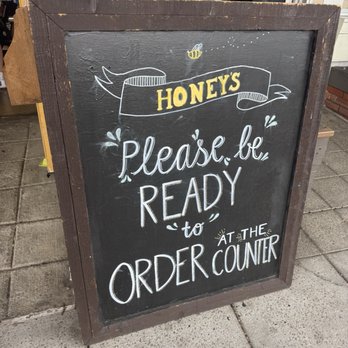 HONEY'S
Please be
READY
to
ORDER AT THE
COUNTER